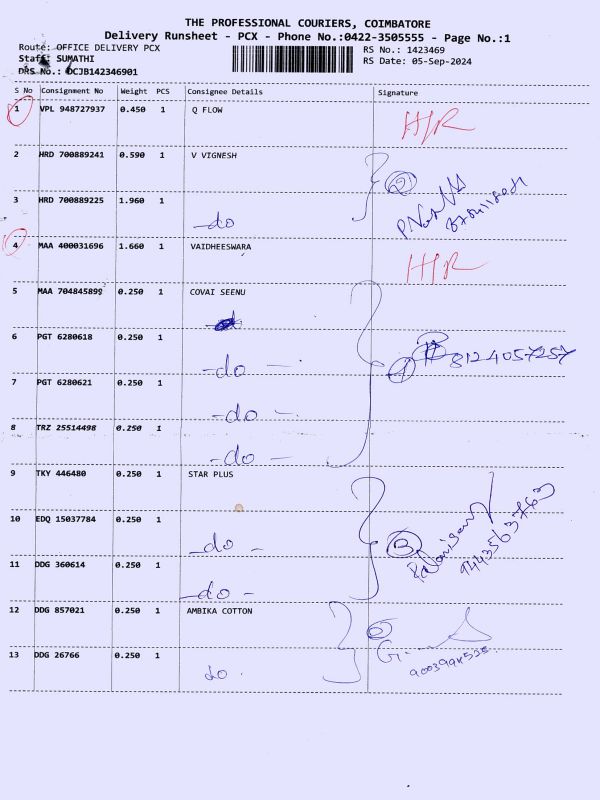 THE PROFESSIONAL COURIERS, COIMBATORE
Delivery Runsheet - PCX - Phone No.:0422-3505555 - Page No.:1
Route: OFFICE DELIVERY PCX
RS No.: 1423469
Staff: SUMATHI
RS Date: 05-Sep-2024
DRS No.: DCJB142346901
S No Consignment No Weight PCS Consignee Details Signature
1 VPL 948727937 0.450 1 Q FLOW H/R
2 HRD 700889241 0.590 1 V VIGNESH
3 HRD 700889225 1.960 1
-do
4 MAA 400031696 1.660 1 VAIDHEESWARA H/R
5 MAA 704845898 0.250 1 COVAI SEENU
6 PGT 6280618 0.250 1
8124057257
-do -
7 PGT 6280621 0.250 1
-do -
8 TRZ 25514498 0.250 1
-do -
9 TKY 446480 0.250 1 STAR PLUS
10 EDQ 15037784 0.250 1
-do -
11 DDG 360614 0.250 1
-do -
12 DDG 857021 0.250 1 AMBIKA COTTON
13 DDG 26766 0.250 1
do